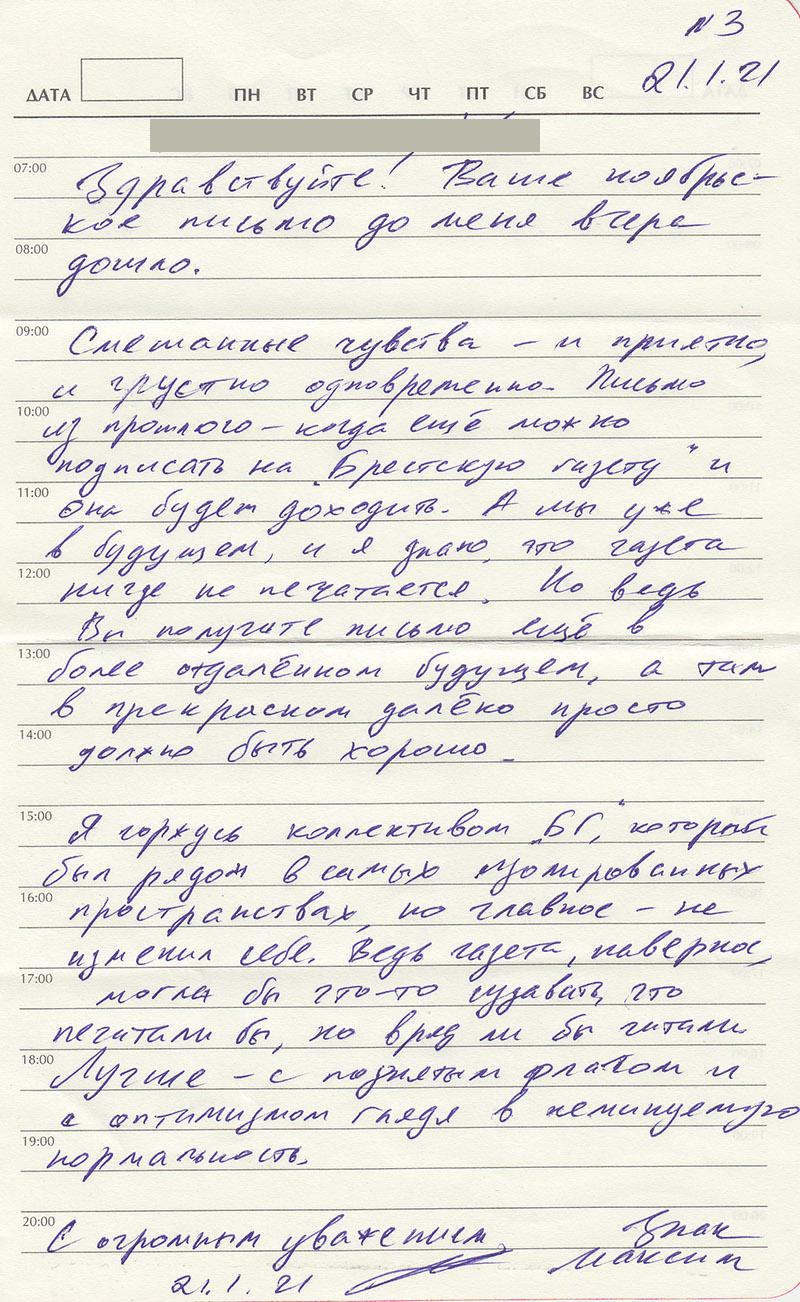 N3
21.1.21
ДАТА ПН ВТ СР ЧТ ПТ СБ ВС
07:00 Здравствуйте! Ваше ноябрьс-
кое письмо до меня вчера
08:00 дошло.
09:00 Смешанные чувства – и приятно,
и грустно одновременно. Письмо
10:00 из прошлого – когда ещё можно
подписать на „Брестскую газету" и
11:00 она будет доходить. А мы уже
в будущем, и я знаю, что газета
12:00 нигде не печатается. Но ведь
Вы получите письмо ещё в
13:00 более отдалённом будущем, а там
в прекрасном далёко просто
14:00 должно быть хорошо.
15:00 Я горжусь коллективом „БГ," который
был рядом в самых изолированных
16:00 пространствах, но главное – не
изменил себе. Ведь газета, наверное,
17:00 могла бы что-то издавать, что
печатали бы, но вряд ли бы читали.
18:00 Лучше – с поднятым флагом и
с оптимизмом глядя в неминуемую
19:00 нормальность.
20:00 С огромным уважением, Знак
Максим
21.1.21